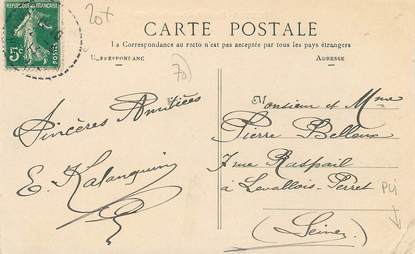 RÉPUBLIQUE FRANÇAISE
5c POSTES
20x
CARTE POSTALE
La Correspondance au recto n'est pas acceptée par tous les pays étrangers
CORRESPONDANC
ADRESSE
70
Sincères Amitiées
E.
Monsieur et Mme
Pierre
7 rue Raspail
à Levallois-Perret
(Seine)